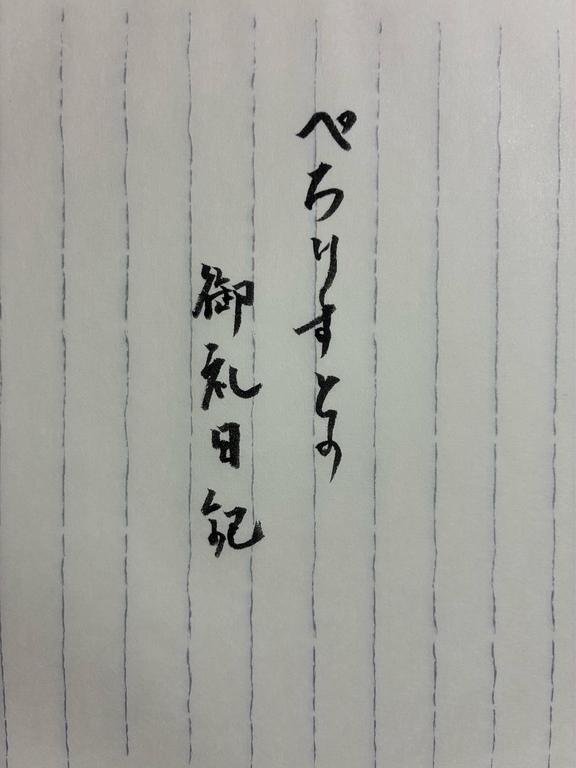 ぺちりすとの
御礼日記